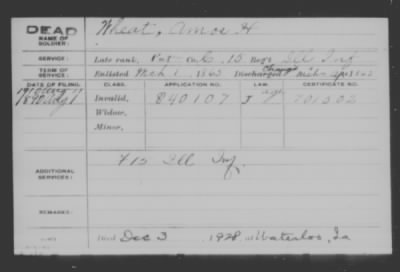 DEAD
NAME OF SOLDIER: Wheat, Amos H
SERVICE: Late rank, Pvt Co. 15 Reg't Ill Inf
TERM OF SERVICE: Enlisted Mch 1, 1865 Discharged
DATE OF FILING. CLASS. APPLICATION NO. LAW. CERTIFICATE NO.
1890 Aug 1 Invalid, 840107 J 701502
Widow,
Minor,
ADDITIONAL SERVICES: Ill Inf.
REMARKS:
Died Dec 3 1928, at Waterloo, Ia